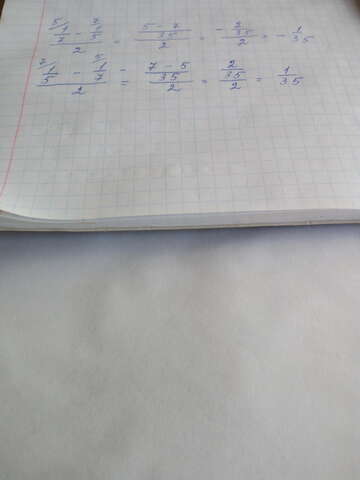 (⁵⁾1/7 - ⁷⁾1/5)/2 = ((5 - 7)/35)/2 = (- 2/35)/2 = - 1/35
(⁷⁾1/5 - ⁵⁾1/7)/2 = ((7 - 5)/35)/2 = (2/35)/2 = 1/35